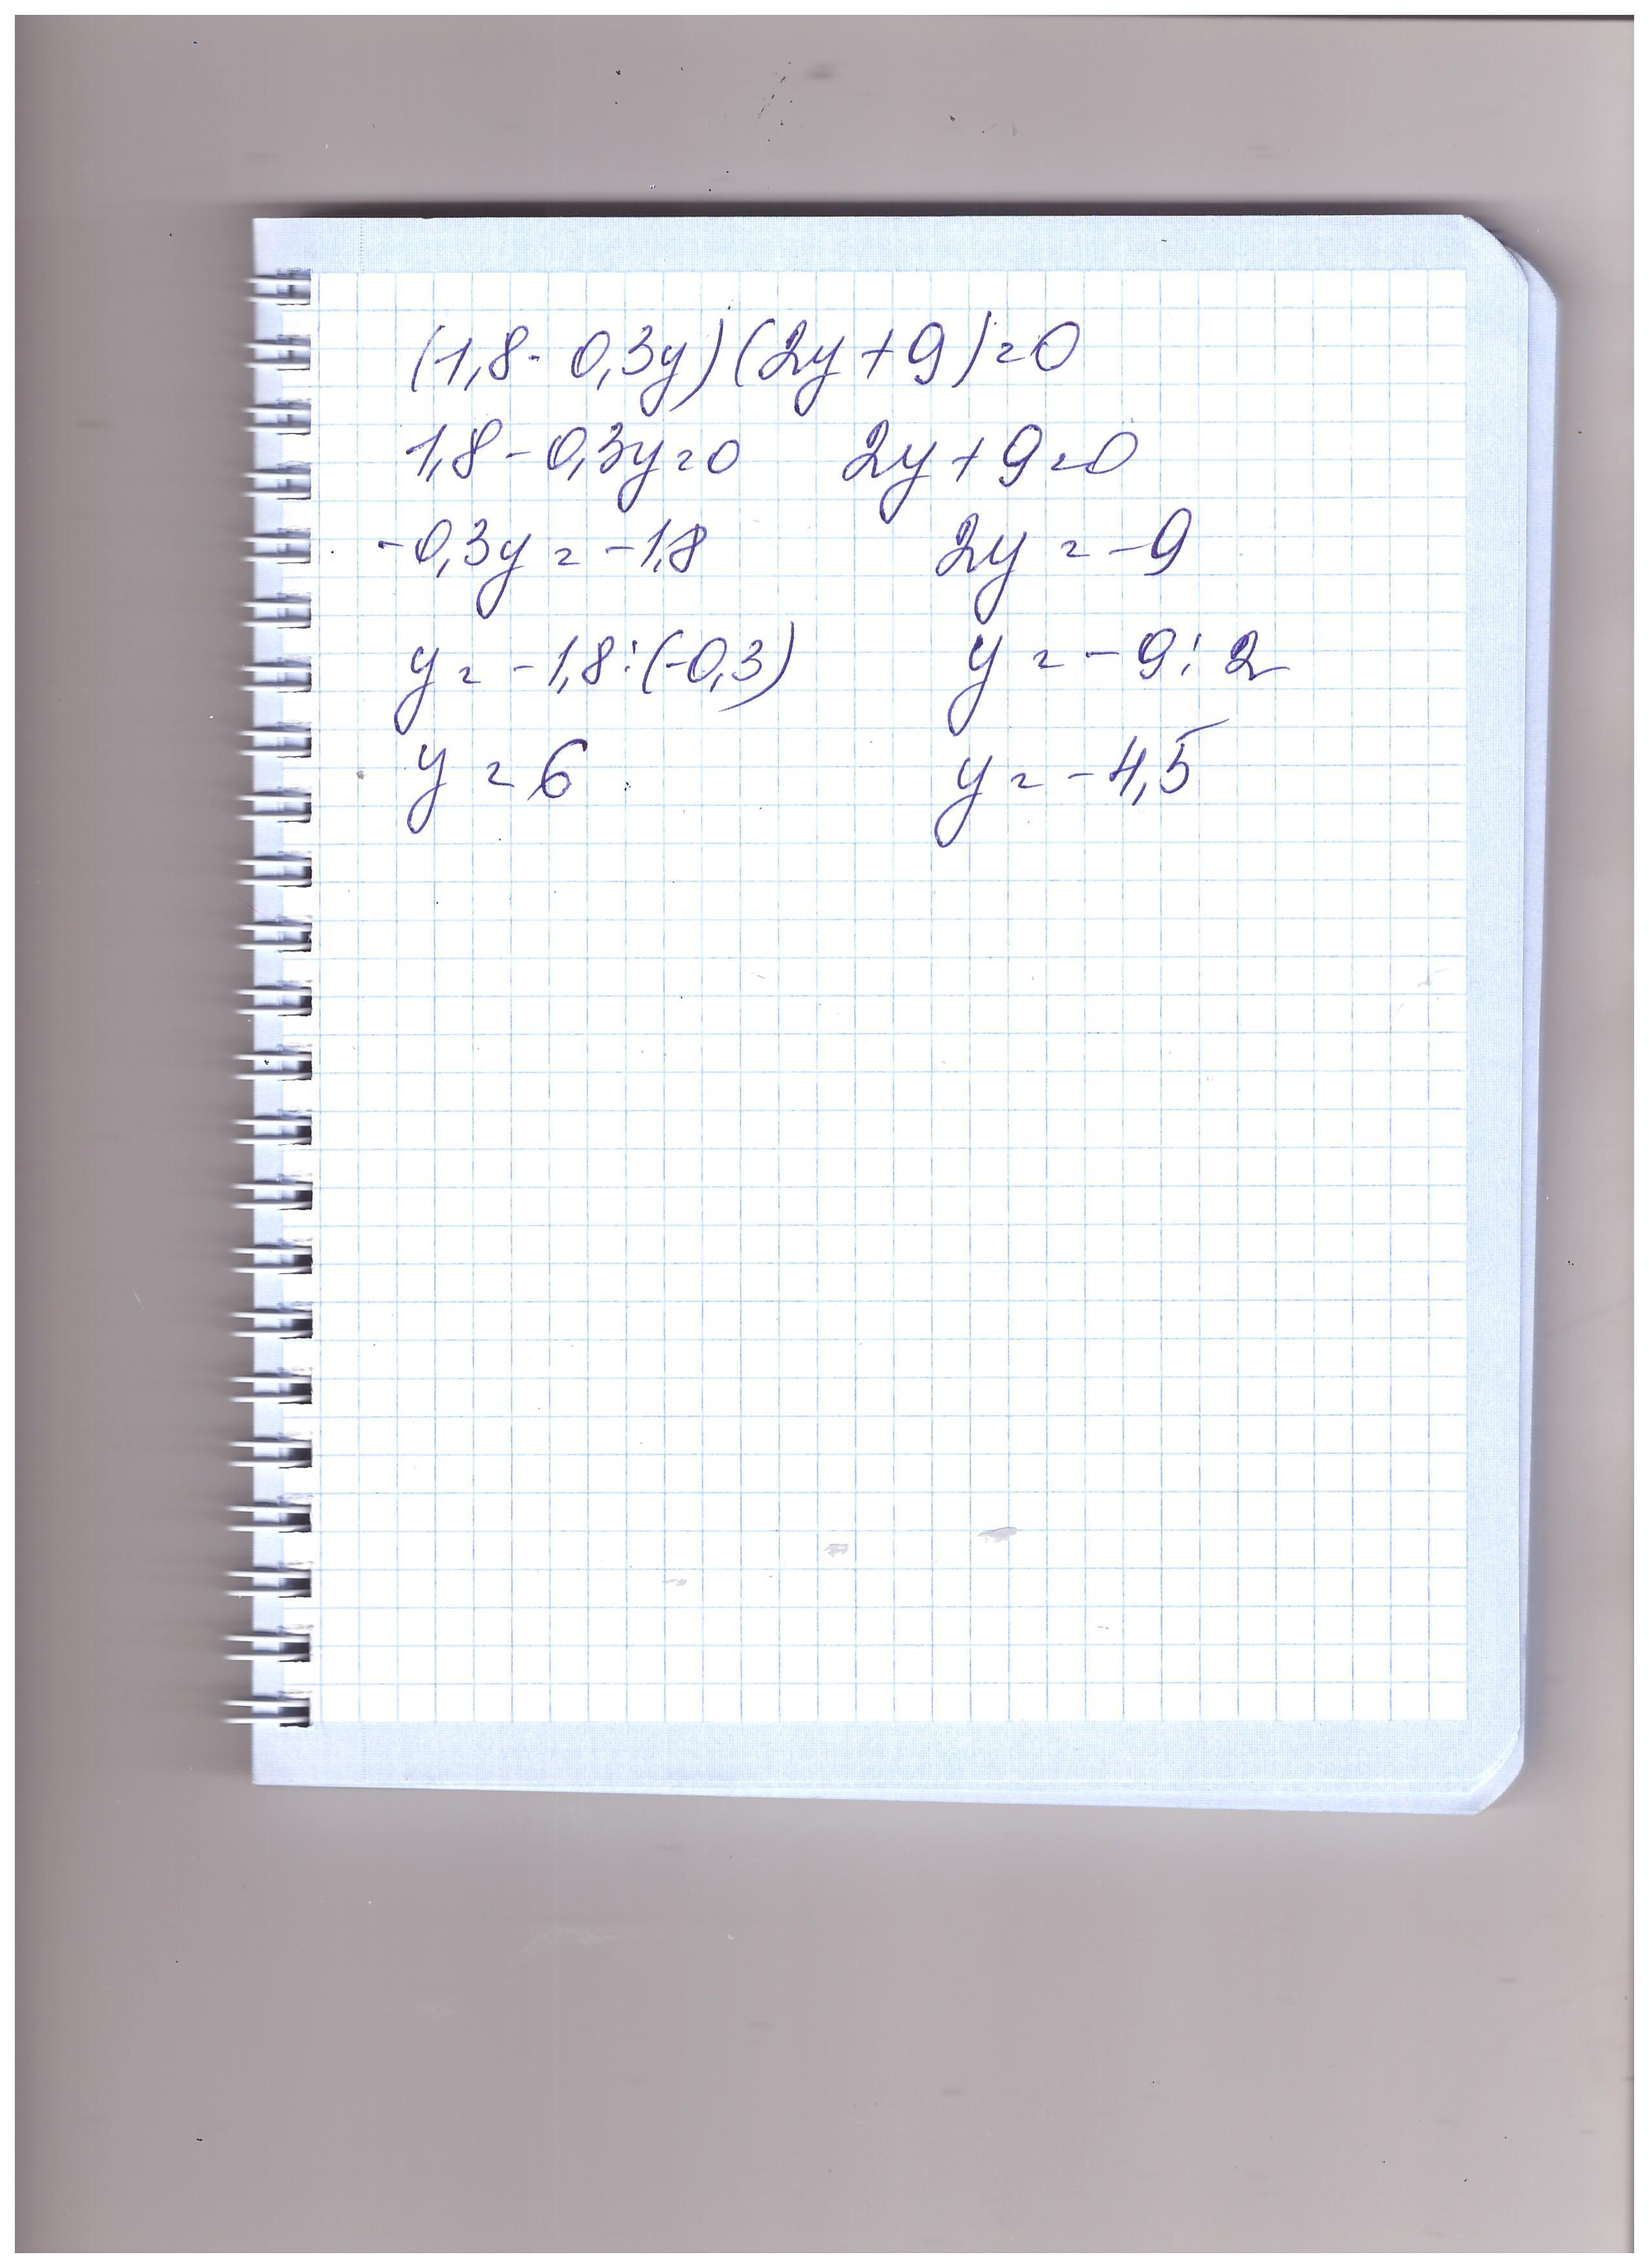 (1,8 - 0,3y)(2y + 9) = 0
1,8 - 0,3y = 0 2y + 9 = 0
-0,3y = -1,8 2y = -9
y = -1,8 : (-0,3) y = -9 : 2
y = 6 y = -4,5